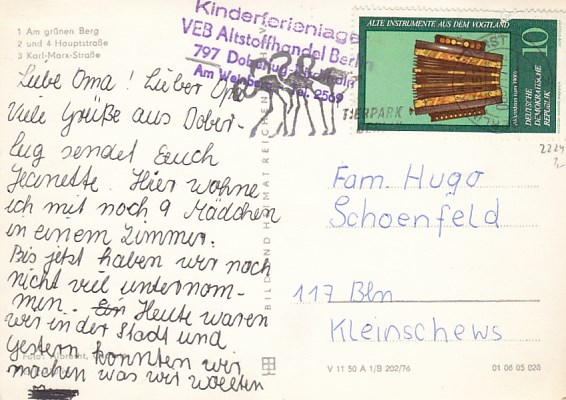 1 Am grünen Berg
2 und 4 Hauptstraße
3 Karl-Marx-Straße
Kinderferienlage
VEB Altstoffhandel Berlin
797 Doberlug-Kirchhain
Am Weinberg Tel. 2569
TIERPARK
ALTE INSTRUMENTE AUS DEM VOGTLAND
10
DEUTSCHE
DEMOKRATISCHE
REPUBLIK
2224
Liebe Oma! Lieber Opa
Viele Grüße aus Dober-
lug sendet Euch
Jeanette. Hier wohne
ich mit noch 9 Mädchen
in einem Zimmer.
Bis jetzt haben wir noch
nicht viel unternom-
men. Heute waren
wir in der Stadt und
gestern konnten wir
machen was wir wollten
Fam. Hugo
Schoenfeld
117 Bln
Kleinschews
BILD UND HEIMAT REICHENBACH
V 11 50 A 1/B 202/76
01 06 05 020